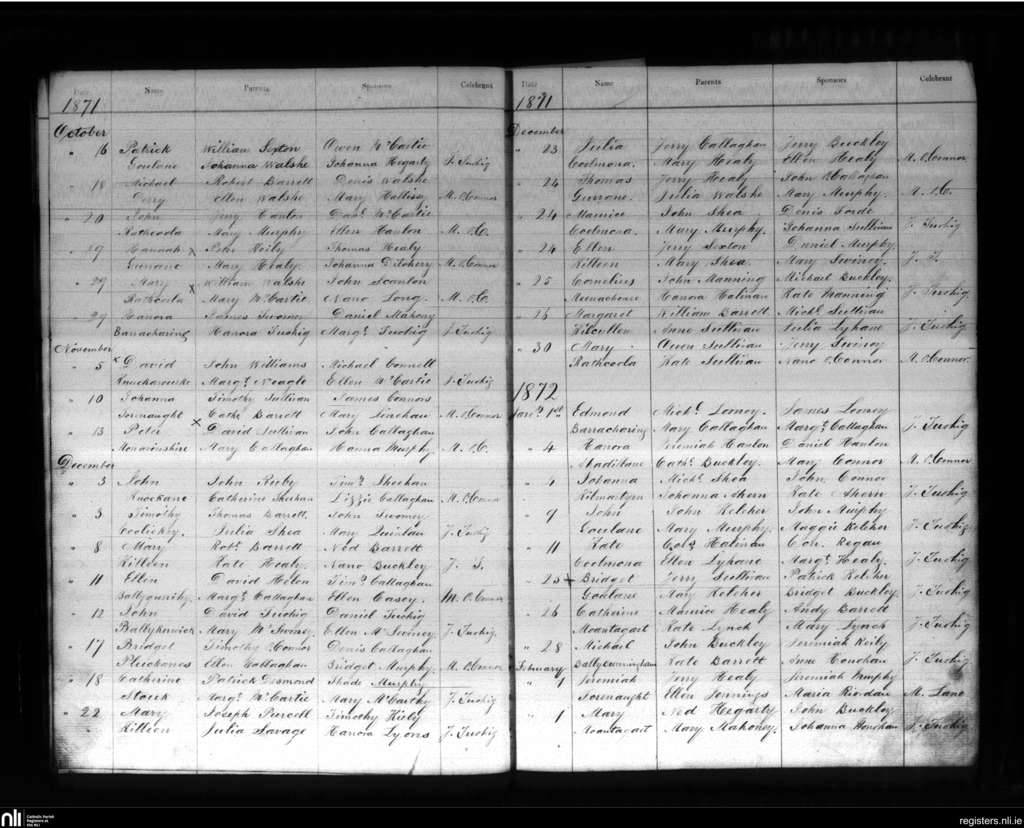 Date Name Parents Sponsors Celebrant
1871
October
" 16 Patrick William Sexton Owen McCartie
Goulane Johanna Walshe Johanna Hegarty J. Tuohig
" 18 Michael Robert Barrett Denis Walshe
Derry Ellen Walshe Mary M. O'Connor
" 20 John Jerry Hanlon McCartie
Rathcoola Mary Murphy Ellen Hanlon M. O'C.
" 29 Hannah Peter Reily Thomas Healy
Mary Healy Johanna M. O'Connor
" 29 Mary William Walshe John Scanlon
Rathcoola Mary McCartie Nano Long M. O'C.
" 29 Hanora James Twomey Daniel Mahony
Barracharing Hanora Tuohig Margt. Tuohig J. Tuohig
November
" 5 David John Williams Michael Connell
Margt. Neagle Ellen McCartie J. Tuohig
" 10 Johanna Timothy Sullivan James Connors
Fornaught Cathe Barrett Mary M. O'Connor
" 13 Peter David Sullivan John Callaghan
Mary Callaghan Hanna Murphy M. O'C.
December
" 3 John John Ruby Timy. Sheehan
Knockane Catherine Sheehan Lizzie Callaghan M. O'Connor
" 3 Timothy Thomas Barrett John Twomey
Julia Shea Mary Quinlan J. Tuohig
" 8 Mary Robt. Barrett Ned Barrett
Killeen Kate Healy Nano Buckley J. T.
" 11 Ellen David Timy. Callaghan
Margt. Callaghan Ellen Casey M. O'Connor
" 12 John David Tuohig Daniel Tuohig
Mary McSwiney Ellen McSwiney J. Tuohig
" 17 Bridget Timothy Connor Denis Callaghan
Ellen Callaghan Bridget Murphy M. O'Connor
" 18 Catherine Patrick Desmond Thade Murphy
Stuck Margt. McCartie Mary McCarthy J. Tuohig
" 22 Mary Joseph Purcell Timothy
Killeen Julia Savage Hanora Lyons J. Tuohig
Date Name Parents Sponsors Celebrant
1871
December
" 23 Julia Jerry Callaghan Jerry Buckley
Coolmona Mary Healy Ellen Healy M. O'Connor
" 24 Thomas Jerry Healy John
Gurrane Julia Walshe Mary Murphy M. O'C.
" 24 Maurice John Shea Denis Forde
Coolmona Mary Murphy Johanna Sullivan J. Tuohig
" 24 Ellen Jerry Sexton Daniel Murphy
Killeen Mary Shea Mary Swiney J. T.
" 25 Cornelius John Manning Michael Buckley
Hanora Kate Manning J. Tuohig
" 26 Margaret William Barrett Michl. Sullivan
Kilcullen Anne Sullivan Julia Lyhane J. Tuohig
" 30 Mary Owen Sullivan Jerry Swiney
Rathcoola Kate Sullivan Nano O'Connor M. O'Connor
1872
Jany. 1st Edmond Michl. James
Barracharing Mary Callaghan Margt. Callaghan J. Tuohig
" 4 Hanora Jeremiah Hanlon Daniel Hanlon
Cathe. Buckley Mary Connor M. O'Connor
" 4 Johanna Michl. Shea John Connor
Kilmartyn Johanna Ahern Kate Ahern J. Tuohig
" 9 John John Kelcher John Murphy
Goulane Mary Murphy Maggie Kelcher J. Tuohig
" 11 Kate Con. Regan
Coolmona Ellen Lyhane Margt. Healy J. Tuohig
" 25 Bridget Jerry Sullivan Patrick Kelcher
Goulane May Kelcher Bridget Buckley J. Tuohig
" 26 Catherine Maurice Healy Andy Barrett
Kate Lynch Mary Lynch J. Tuohig
" 28 Michael John Buckley Jeremiah Reily
Ballycunningham Kate Barrett Anne Honohan J. Tuohig
February
" 1 Jeremiah Jerry Healy Jeremiah Murphy
Fornaught Ellen Jennings Maria Riordan M. Lane
" 1 Mary Ned Hegarty John Buckley
Mary Mahoney Johanna Honohan J. Tuohig
nli Catholic Parish Registers at the NLI
registers.nli.ie